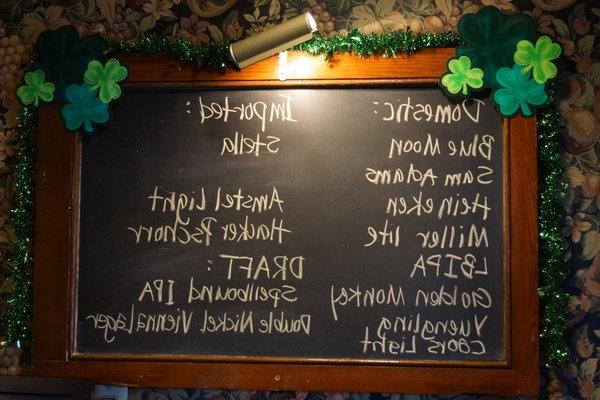 Domestic:
Blue Moon
Sam Adams
Heineken
Miller lite
LBIPA
Golden Monkey
Yuengling
Coors Light
Imported:
Stella
Amstel Light
Hacker Pschorr
DRAFT:
Spellbound IPA
Double Nickel Vienna Lager